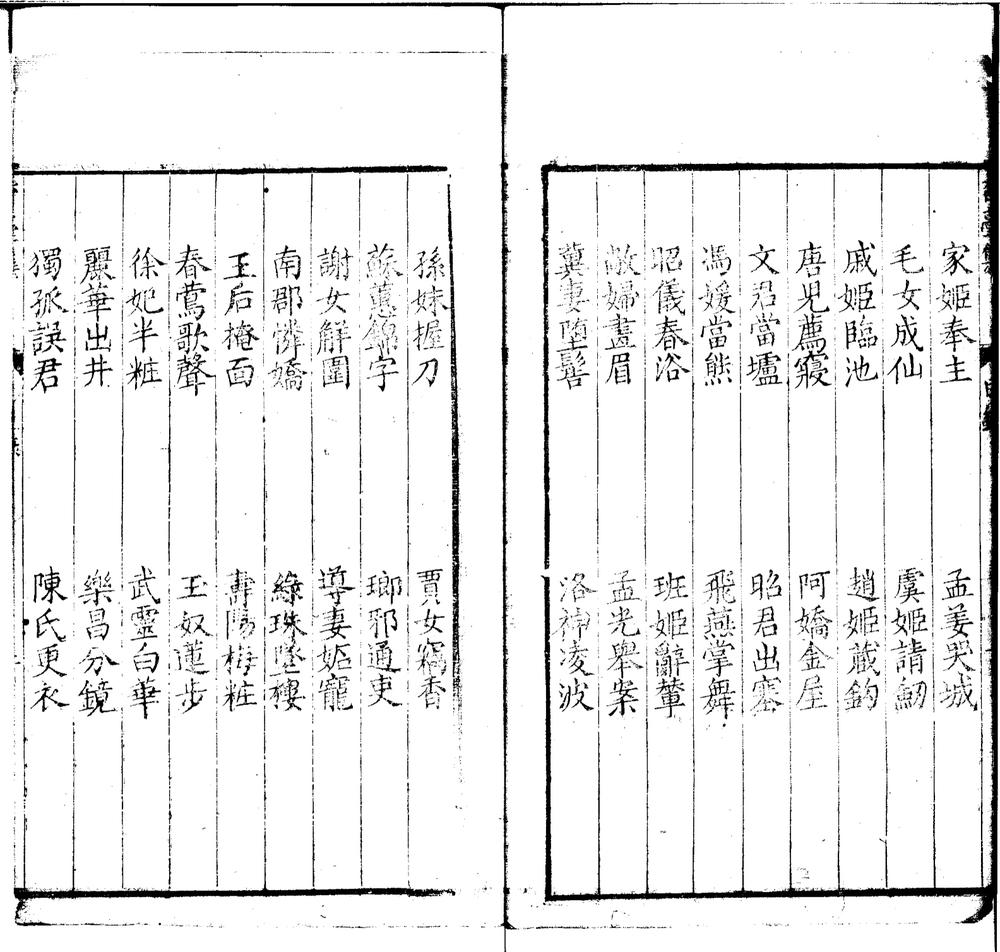 家姬奉主　孟姜哭城
毛女成仙　虞姬請劒
戚姬臨池　趙姬藏鈎
唐兒薦寢　阿嬌金屋
文君當壚　昭君出塞
馮媛當熊　飛燕掌舞
昭儀春浴　班姬辭輦
敞婦畫眉　孟光舉案
冀妻堕髻　洛神凌波
孫妹握刀　賈女竊香
蘇蕙錦字　瑯邪通吏
謝女解圍　導妻妬寵
南郡憐嬌　綠珠墜樓
王后掩面　壽陽梅粧
春鶯歌聲　玉奴蓮步
徐妃半粧　武靈白華
麗華出井　樂昌分鏡
獨孤誤君　陳氏更衣